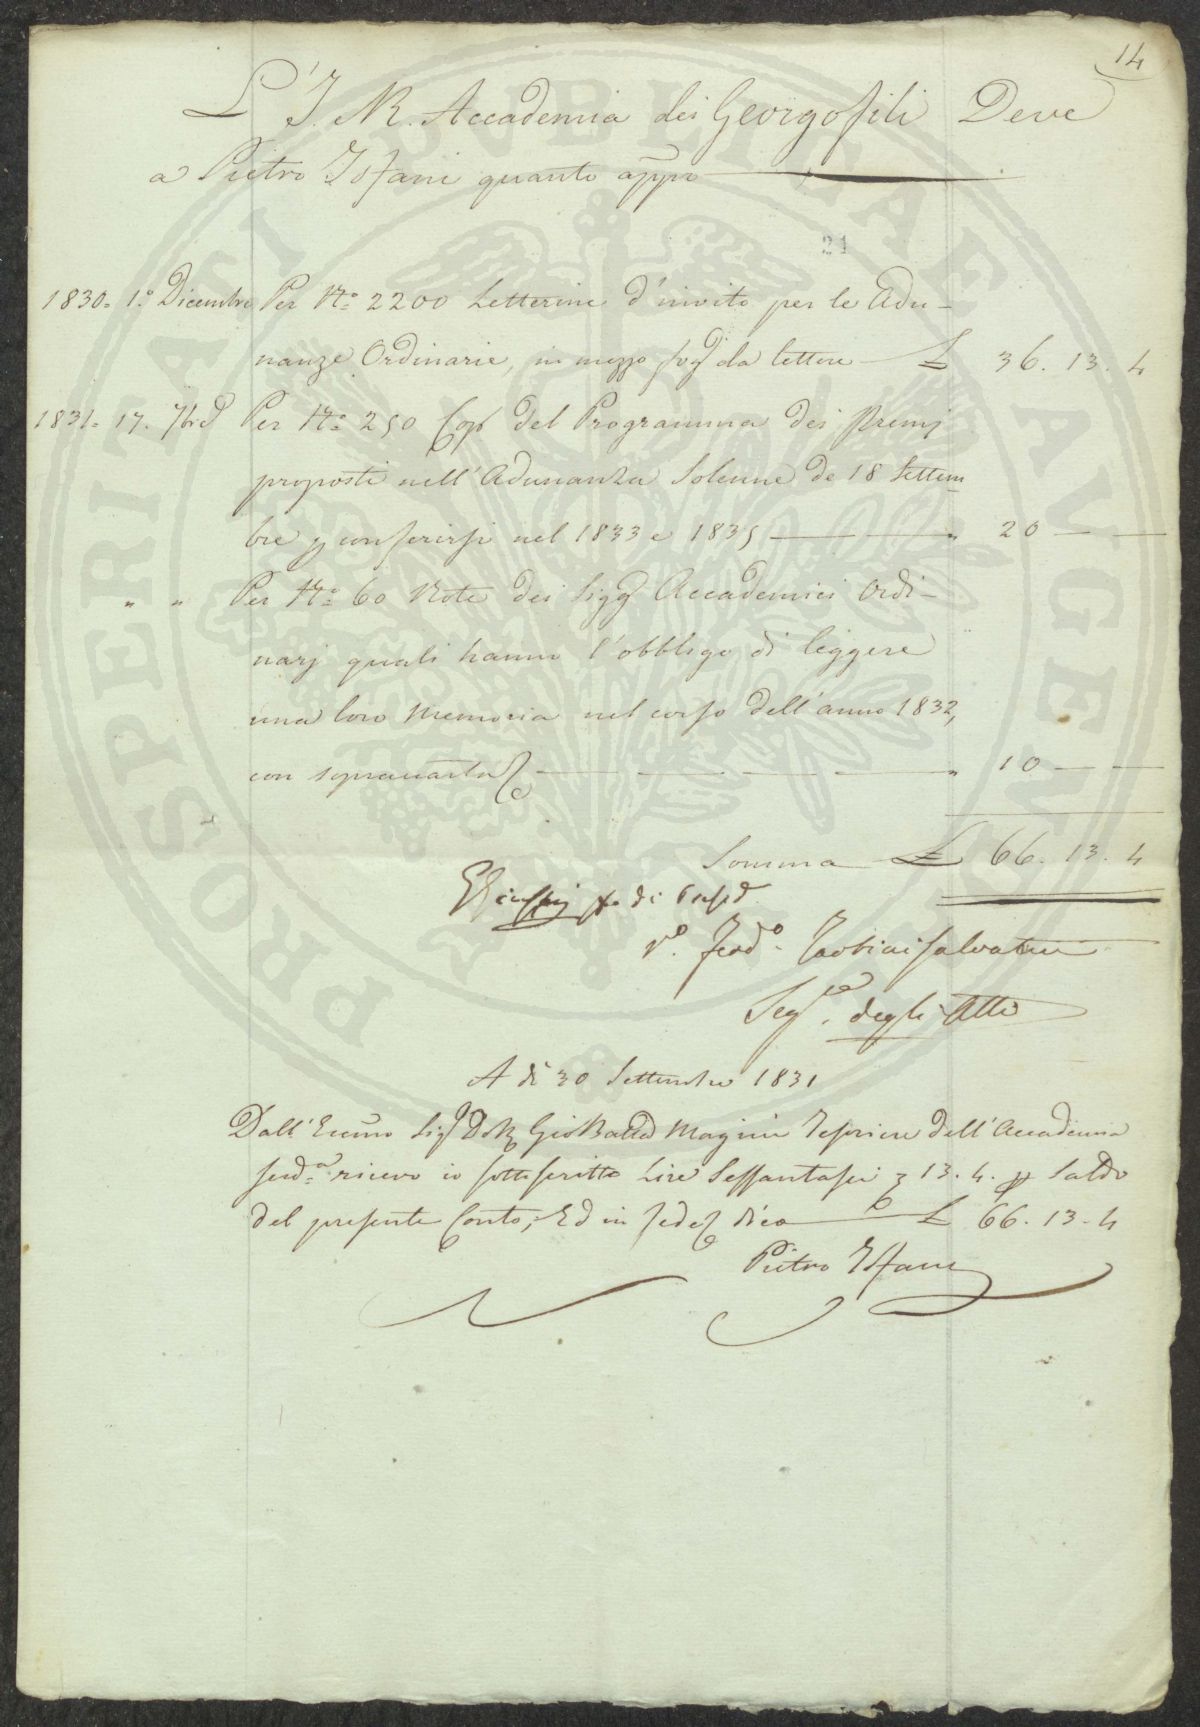 14
L'I. R. Accademia dei Georgofili Deve
a Pietro Isfani quanto app.o
21
1830 = 1.o Dicembre Per N.o 2200 Letterine d'invito per le Adu-
nanze Ordinarie, in mezzo fog. da lettere £ 36. 13. 4
1831 = 17. 7bre Per N.o 250 Cop. del Programma dei Premj
proposti nell'Adunanza Solenne de 18 Settem-
bre p conferirsi nel 1833 e 1835 — " 20 — —
" " Per N.o 60 Note dei Sigg. Accademici Ordi-
narj quali hanno l'obbligo di leggere
una loro Memoria nel corso dell'anno 1832,
con sopracarta — " 10 — —
Somma £ 66. 13. 4
di
V.o Ferd.o Tartini Salvatici
Seg.o degli Atti
A dì 30 Settembre 1831
Dall'Eccmo Sig. Dott. Gio Batta Magini Tesoriere dell'Accademia
sud.a ricevo io sottoscritto Lire Sessantasei 13. 4. p Saldo
del presente Conto; Ed in fede dico £ 66. 13. 4
Pietro Isfani
PROSPERITATI PUBLICAE AUGENDAE